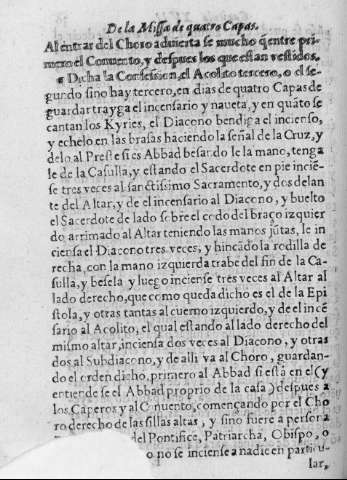 De la Missa de quatro Capas.
Al entrar del Choro aduierta se mucho q̃ entre pri-
mero el Conuento, y despues los que estan vestidos.
Dicha la Confession, el Acolito tercero, o el se-
gundo sino hay tercero, en dias de quatro Capas de
guardar trayga el incensario y naueta, y en quãto se
cantan los Kyries, el Diacono bendiga el incienso,
y echelo en las brasas haciendo la señal de la Cruz, y
delo al Preste si es Abbad besando le la mano, tenga
le de la Casulla, y estando el Sacerdote en pie incie-
se tres veces al sanctissimo Sacramento, y dos delan
te del Altar, y de el incensario al Diacono, y buelto
el Sacerdote de lado sobre el codo del braço izquier
do arrimado al Altar teniendo las manos jũtas, le in
ciensa el Diacono tres veces, y hincãdo la rodilla de
recha, con la mano izquierda trabe del fin de la Ca-
sulla, y besela y luego inciense tres veces al Altar al
lado derecho, que como queda dicho es el de la Epi
stola, y otras tantas al cuerno izquierdo, y de el incẽ
sario al Acolito, el qual estando al lado derecho del
mismo altar, inciensa dos veces al Diacono, y otras
dos al Subdiacono, y de alli va al Choro, guardan-
do el orden dicho, primero al Abbad si està en el (y
entiende se el Abbad proprio de la casa) despues a
los Caperos y al Conuento, començando por el Cho
ro derecho de las sillas altas, y sino fuere a persona
del Pontifice, Patriarcha, Obispo, o
no se inciense a nadie en particu-
lar,